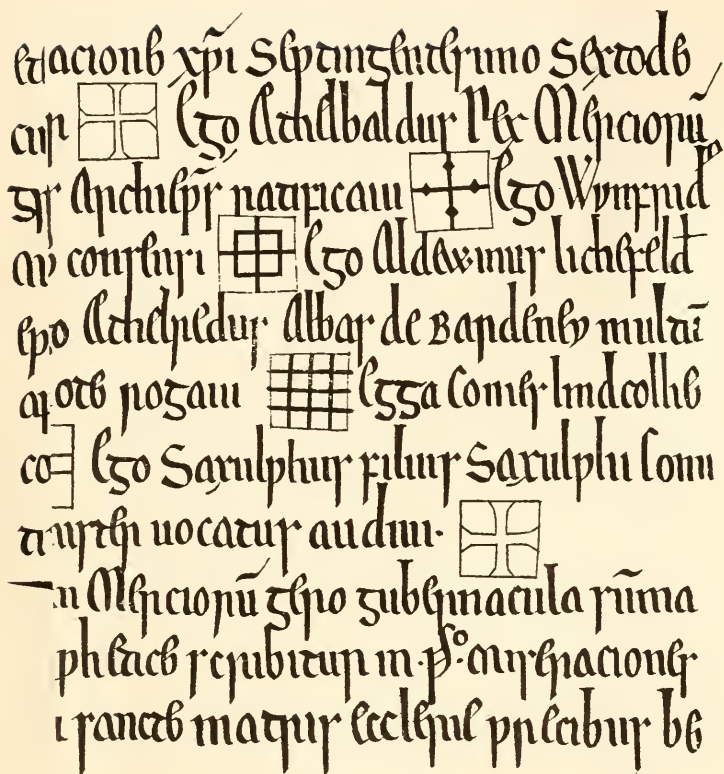 etacione xpi septingentesimo sexto de
cus Ego Ethelbaldus Rex Merciorū
gis Archiepr̄ ratificaui Ego Wynfrid
ay consensi Ego Aldewinus lichefeld
epo Ethelredus Abbas de Bardeney multū
apote rogaui Egga Comes lindcolne
co Ego Saxulphus filius Saxulphi Comi
tiusthe uocatus audiui.
n Merciorū gero gubernacula sūma
phetice scribitur in .p̄o. miseraciones
i sancte matris ecclesie precibus be